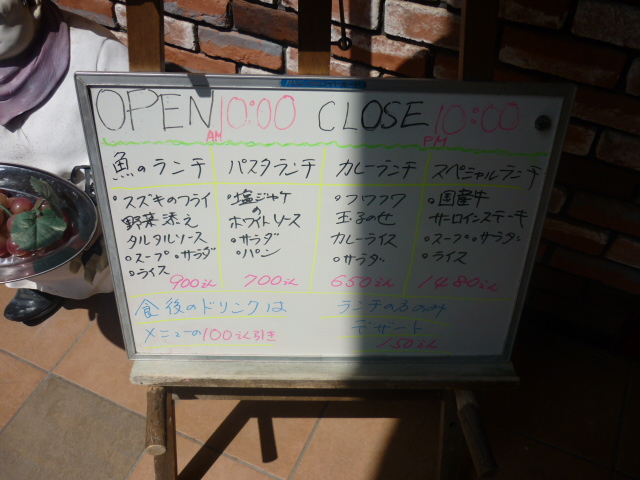 OPEN 10:00 AM CLOSE 10:00 PM
魚のランチ
・スズキのフライ
野菜添え
タルタルソース
・スープ・サラダ
・ライス
900えん
パスタランチ
・塩ジャケ
の
ホワイトソース
・サラダ
・パン
700えん
カレーランチ
・フワフワ
玉子のせ
カレーライス
・サラダ
650えん
スペシャルランチ
・国産牛
サーロインステーキ
・スープ・サラダ
・ライス
1480えん
食後のドリンクは
メニューの100えん引き
ランチのみ
デザート
150えん